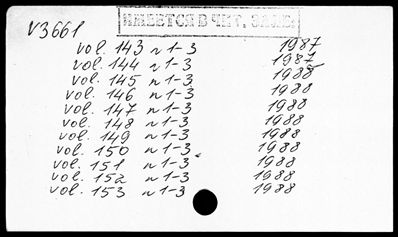 V3661
ИМЕЕТСЯ В ЧИТ. ЗАЛЕ.
vol. 143 n 1-3 1987
vol. 144 n 1-3 1987
vol. 145 n 1-3 1988
vol. 146 n 1-3 1988
vol. 147 n 1-3 1988
vol. 148 n 1-3 1988
vol. 149 n 1-3 1988
vol. 150 n 1-3 1988
vol. 151 n 1-3 1988
vol. 152 n 1-3 1988
vol. 153 n 1-3 1988